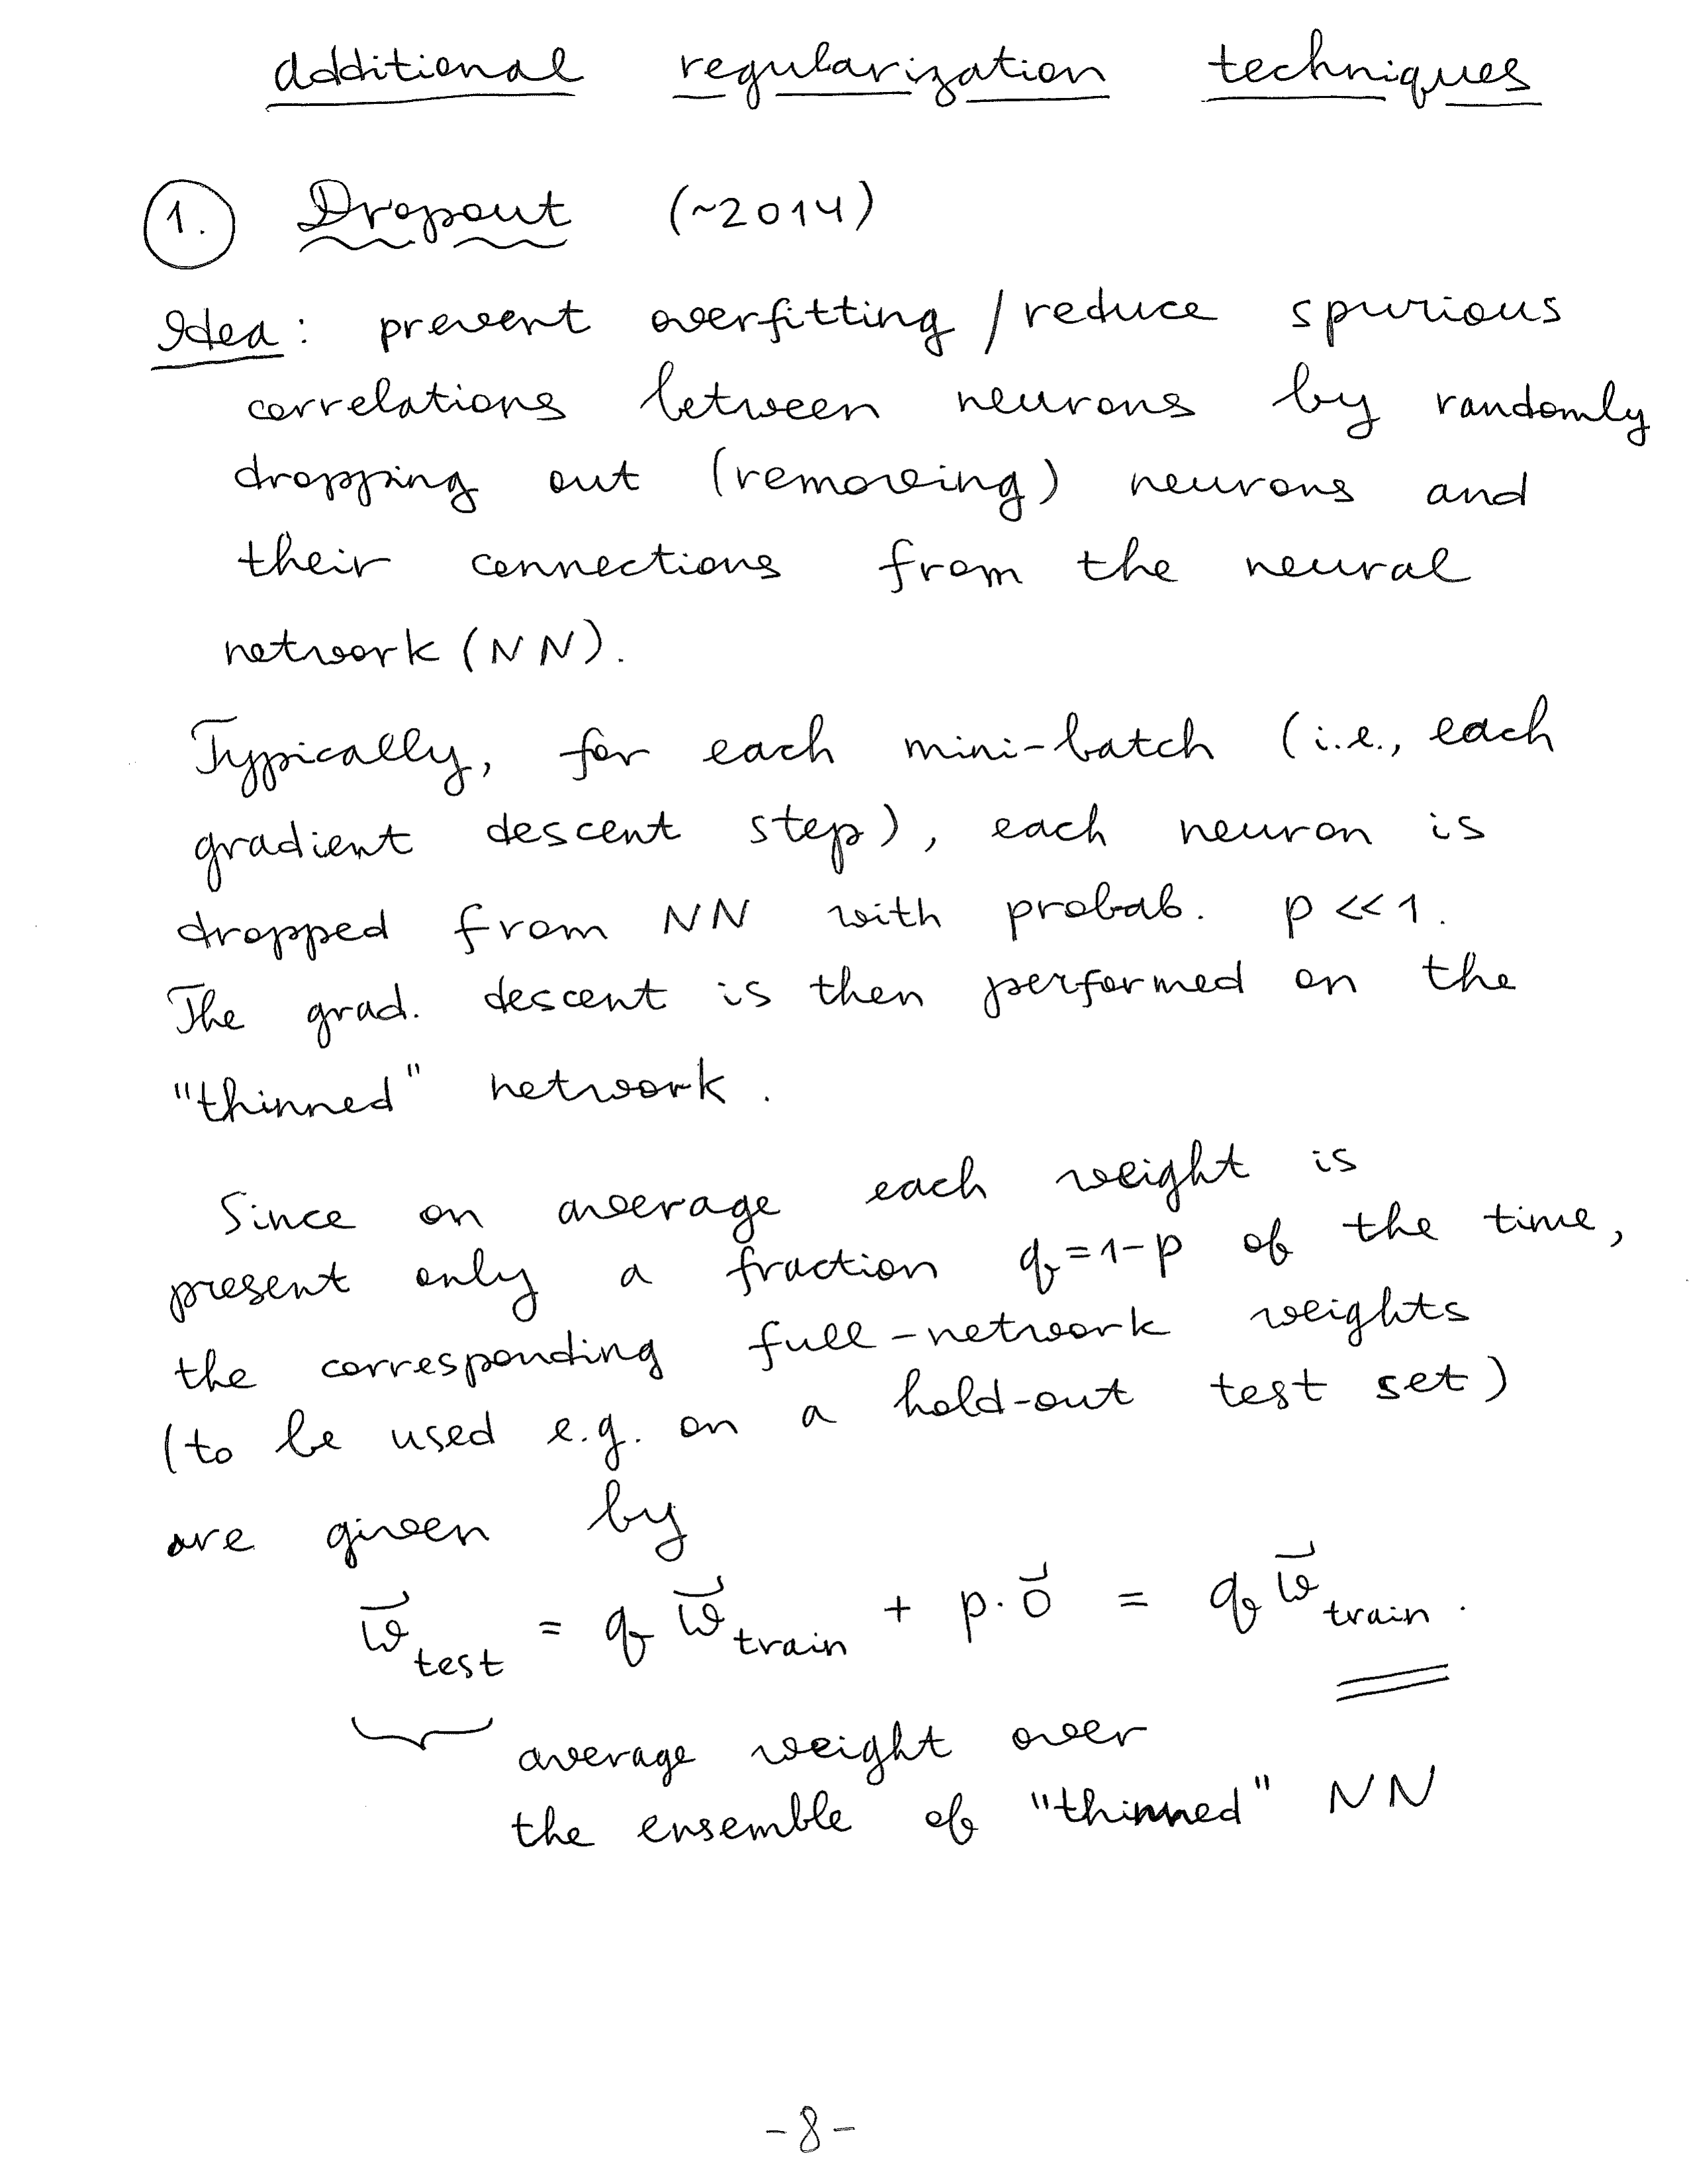 additional regularization techniques
1. Dropout (~2014)
Idea: prevent overfitting / reduce spurious
correlations between neurons by randomly
dropping out (removing) neurons and
their connections from the neural
network (NN).
Typically, for each mini-batch (i.e., each
gradient descent step), each neuron is
dropped from NN with probab. p << 1.
The grad. descent is then performed on the
"thinned" network.
Since on average each weight is
present only a fraction q = 1-p of the time,
the corresponding full-network weights
(to be used e.g. on a hold-out test set)
are given by
w⃗_test = q w⃗_train + p · 0⃗ = q w⃗_train .
average weight over
the ensemble of "thinned" NN
-8-